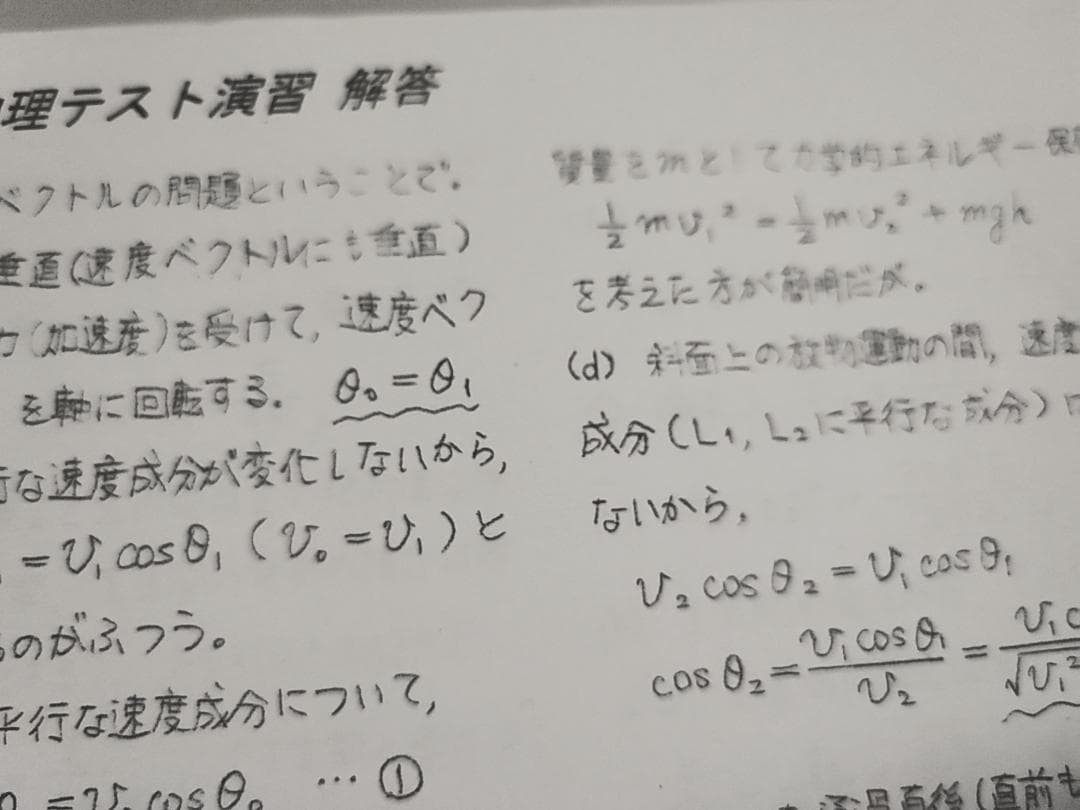 理テスト演習 解答
ベクトルの問題ということで。
垂直(速度ベクトルにも垂直)
力(加速度)を受けて,速度ベク
を軸に回転する. θ₀ = θ₁
行な速度成分が変化しないから,
= v₁ cos θ₁ (v₀ = v₁) と
ものがふつう。
平行な速度成分について,
= v₀ cos θ₀ … ①
質量をmとして力学的エネルギー保
½mv₁² = ½mv₂² + mgh
を考えた方が簡明だが.
(d) 斜面上の放物運動の間, 速度
成分(L₁, L₂に平行な成分)は
ないから,
v₂ cos θ₂ = v₁ cos θ₁
cos θ₂ = v₁ cos θ₁ / v₂ = v₁ c / √v₁²
通過直後(直前も